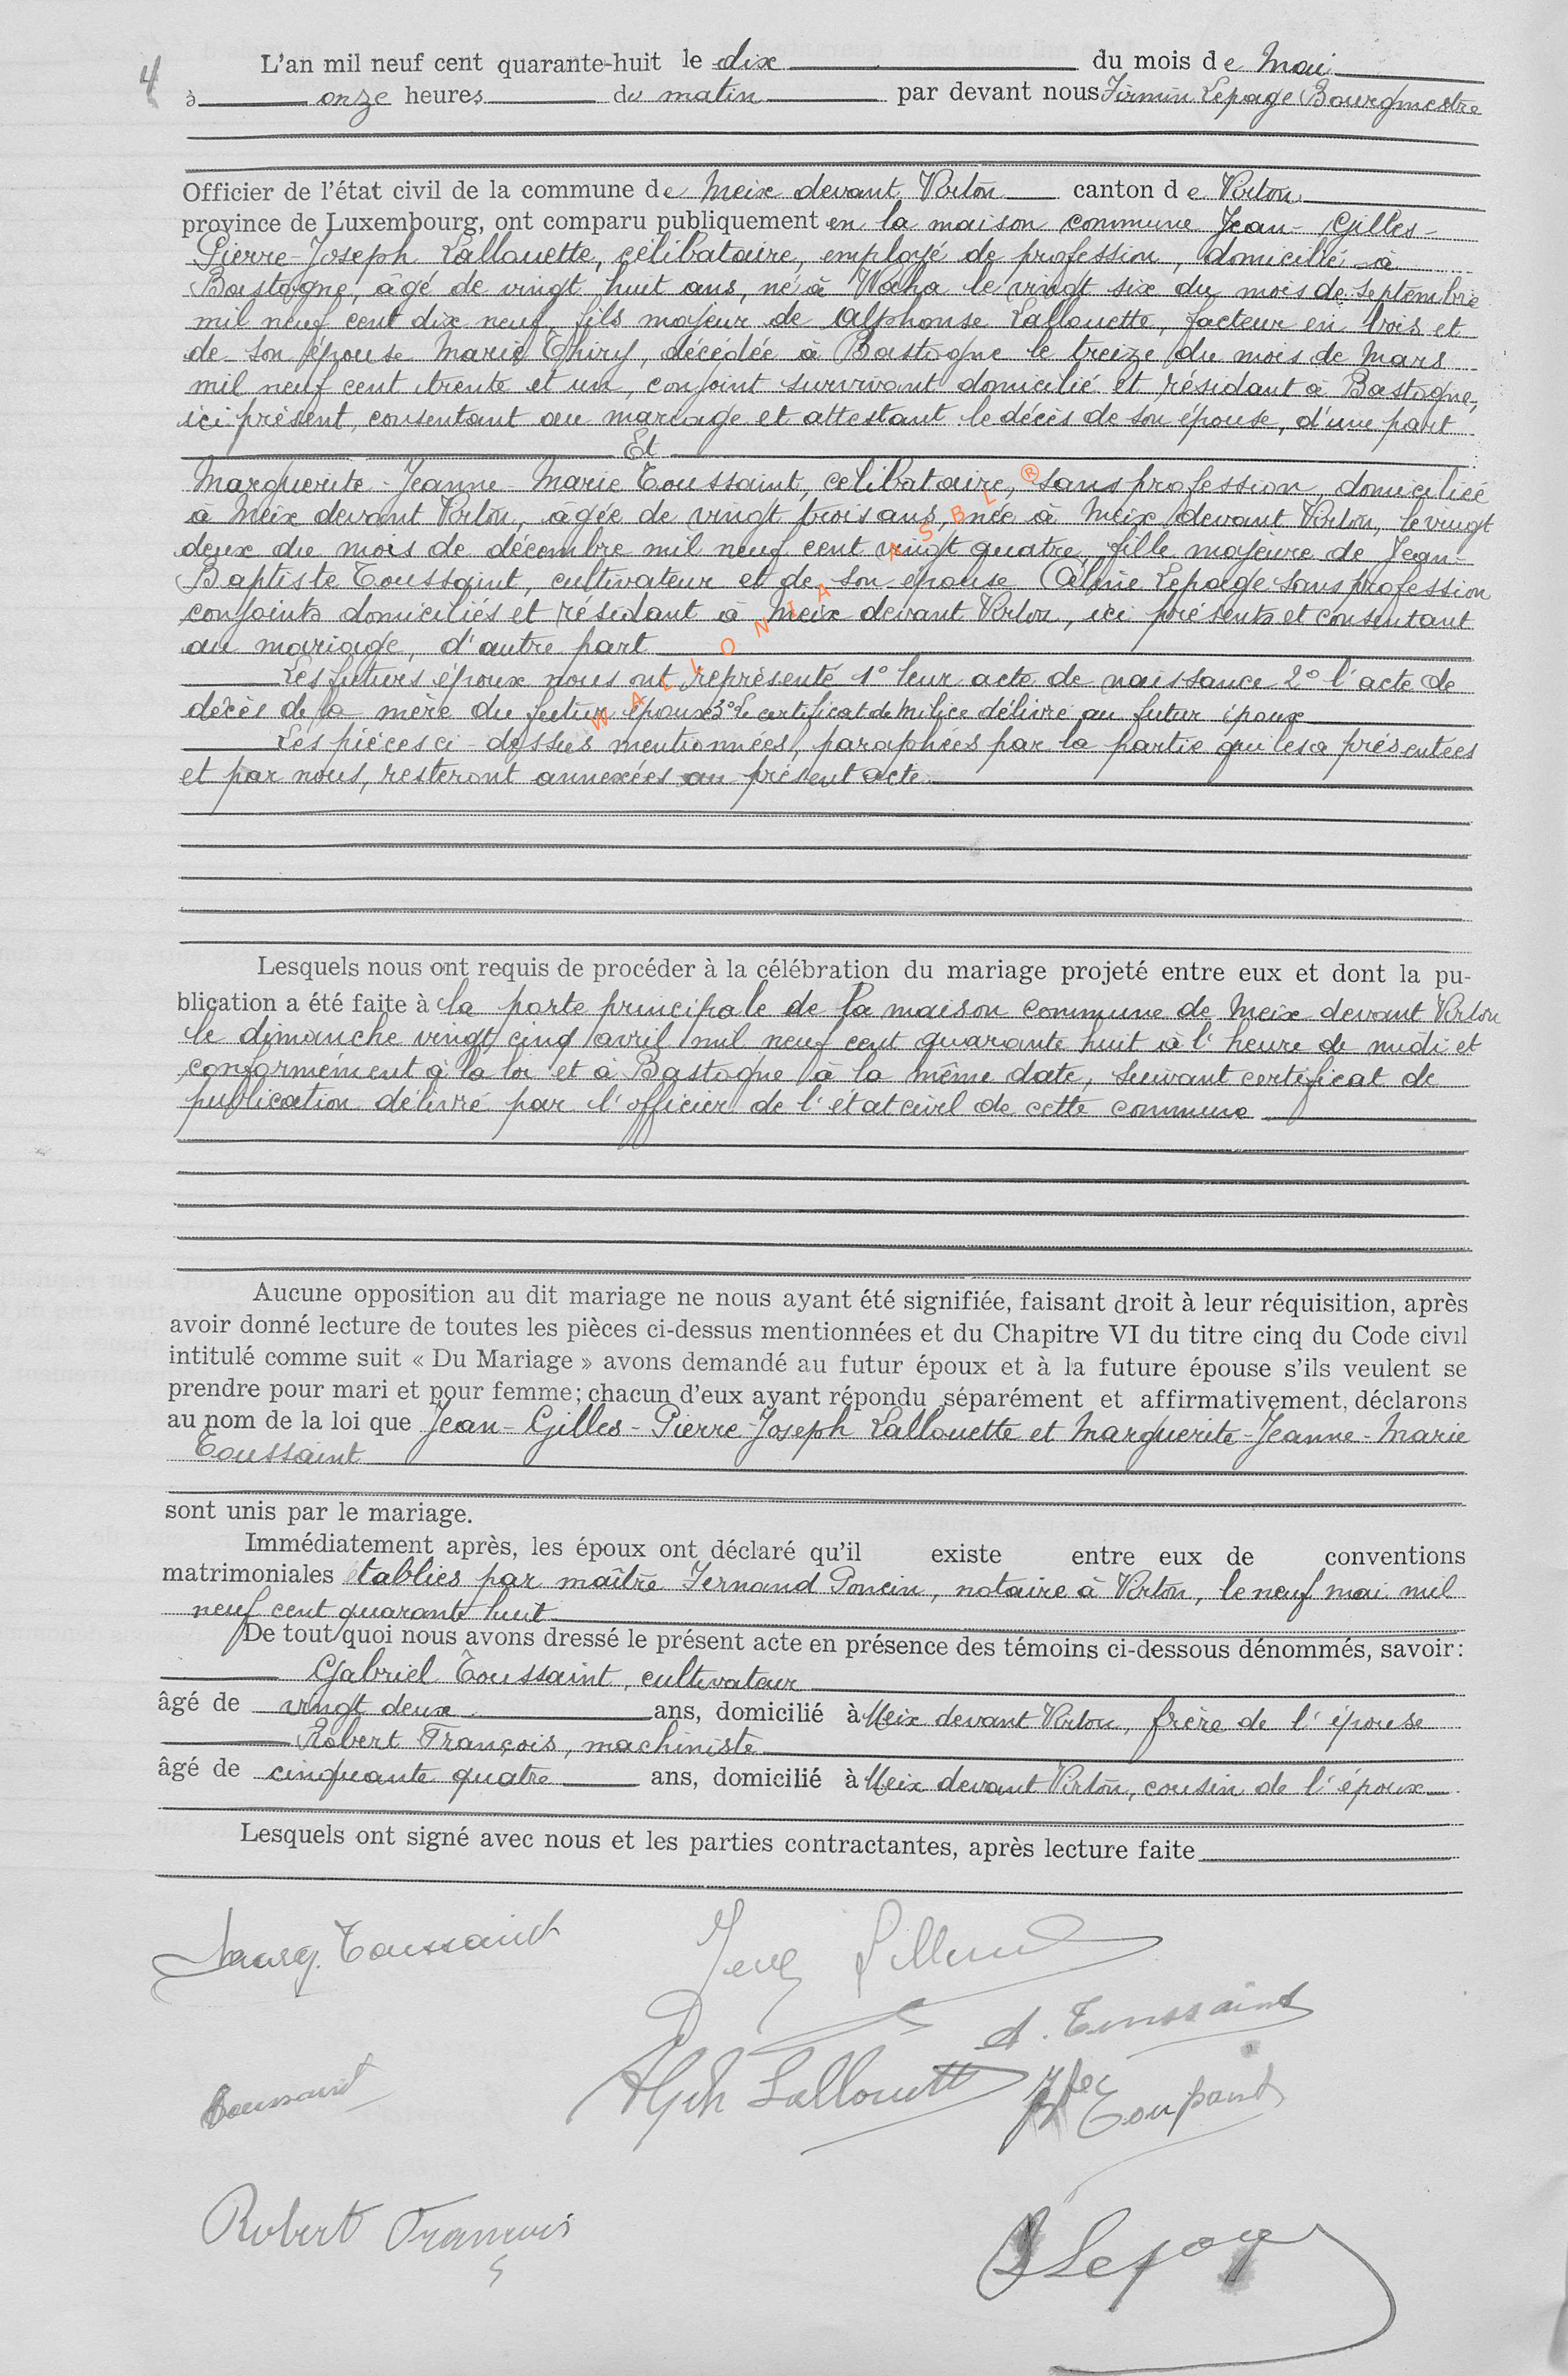 4
L'an mil neuf cent quarante-huit le dix du mois de Mai
à onze heures du matin par devant nous Firmin Lepage Bourgmestre
Officier de l'état civil de la commune de Meix devant Virton canton de Virton
province de Luxembourg, ont comparu publiquement en la maison commune Jean-Gilles-
Pierre-Joseph Lallouette, célibataire, employé de profession, domicilié à
Bastogne, âgé de vingt huit ans, né à Waha le vingt six du mois de septembre
mil neuf cent dix neuf, fils majeur de Alphonse Lallouette, facteur en bois et
de son épouse Marie Thiry, décédée à Bastogne le treize du mois de Mars
mil neuf cent trente et un, conjoint survivant domicilié et résidant à Bastogne,
ici présent, consentant au mariage et attestant le décès de son épouse, d'une part
Et
Marguerite-Jeanne-Marie Toussaint, célibataire, sans profession, domiciliée
à Meix devant Virton, âgée de vingt trois ans, née à Meix devant Virton, le vingt
deux du mois de décembre mil neuf cent vingt quatre, fille majeure de Jean-
Baptiste Toussaint, cultivateur et de son épouse Céline Lepage sans profession
conjoints domiciliés et résidant à Meix devant Virton, ici présents et consentant
au mariage, d'autre part
Les futurs époux nous ont représenté 1° leur acte de naissance 2° l'acte de
décès de la mère du futur époux 3° Le certificat de Milice délivré au futur époux
Les pièces ci-dessus mentionnées, paraphées par la partie qui les a présentées
et par nous, resteront annexées au présent acte
WALLONIA ASBL ®
Lesquels nous ont requis de procéder à la célébration du mariage projeté entre eux et dont la pu-
blication a été faite à la porte principale de la maison commune de Meix devant Virton
le dimanche vingt cinq avril mil neuf cent quarante huit à l'heure de midi et
conformément à la loi et à Bastogne à la même date, suivant certificat de
publication délivré par l'officier de l'état civil de cette commune
Aucune opposition au dit mariage ne nous ayant été signifiée, faisant droit à leur réquisition, après
avoir donné lecture de toutes les pièces ci-dessus mentionnées et du Chapitre VI du titre cinq du Code civil
intitulé comme suit « Du Mariage » avons demandé au futur époux et à la future épouse s'ils veulent se
prendre pour mari et pour femme; chacun d'eux ayant répondu séparément et affirmativement, déclarons
au nom de la loi que Jean-Gilles-Pierre-Joseph Lallouette et Marguerite-Jeanne-Marie
Toussaint
sont unis par le mariage.
Immédiatement après, les époux ont déclaré qu'il existe entre eux de conventions
matrimoniales établies par maître Fernand Poncin, notaire à Virton, le neuf mai mil
neuf cent quarante huit
De tout quoi nous avons dressé le présent acte en présence des témoins ci-dessous dénommés, savoir:
Gabriel Toussaint, cultivateur
âgé de vingt deux ans, domicilié à Meix devant Virton, frère de l'épouse
Robert François, machiniste
âgé de cinquante quatre ans, domicilié à Meix devant Virton, cousin de l'époux
Lesquels ont signé avec nous et les parties contractantes, après lecture faite
Marg. Toussaint
Toussaint
Alph Lallouette
Toussaint
Toussaint
Robert François
Lepage